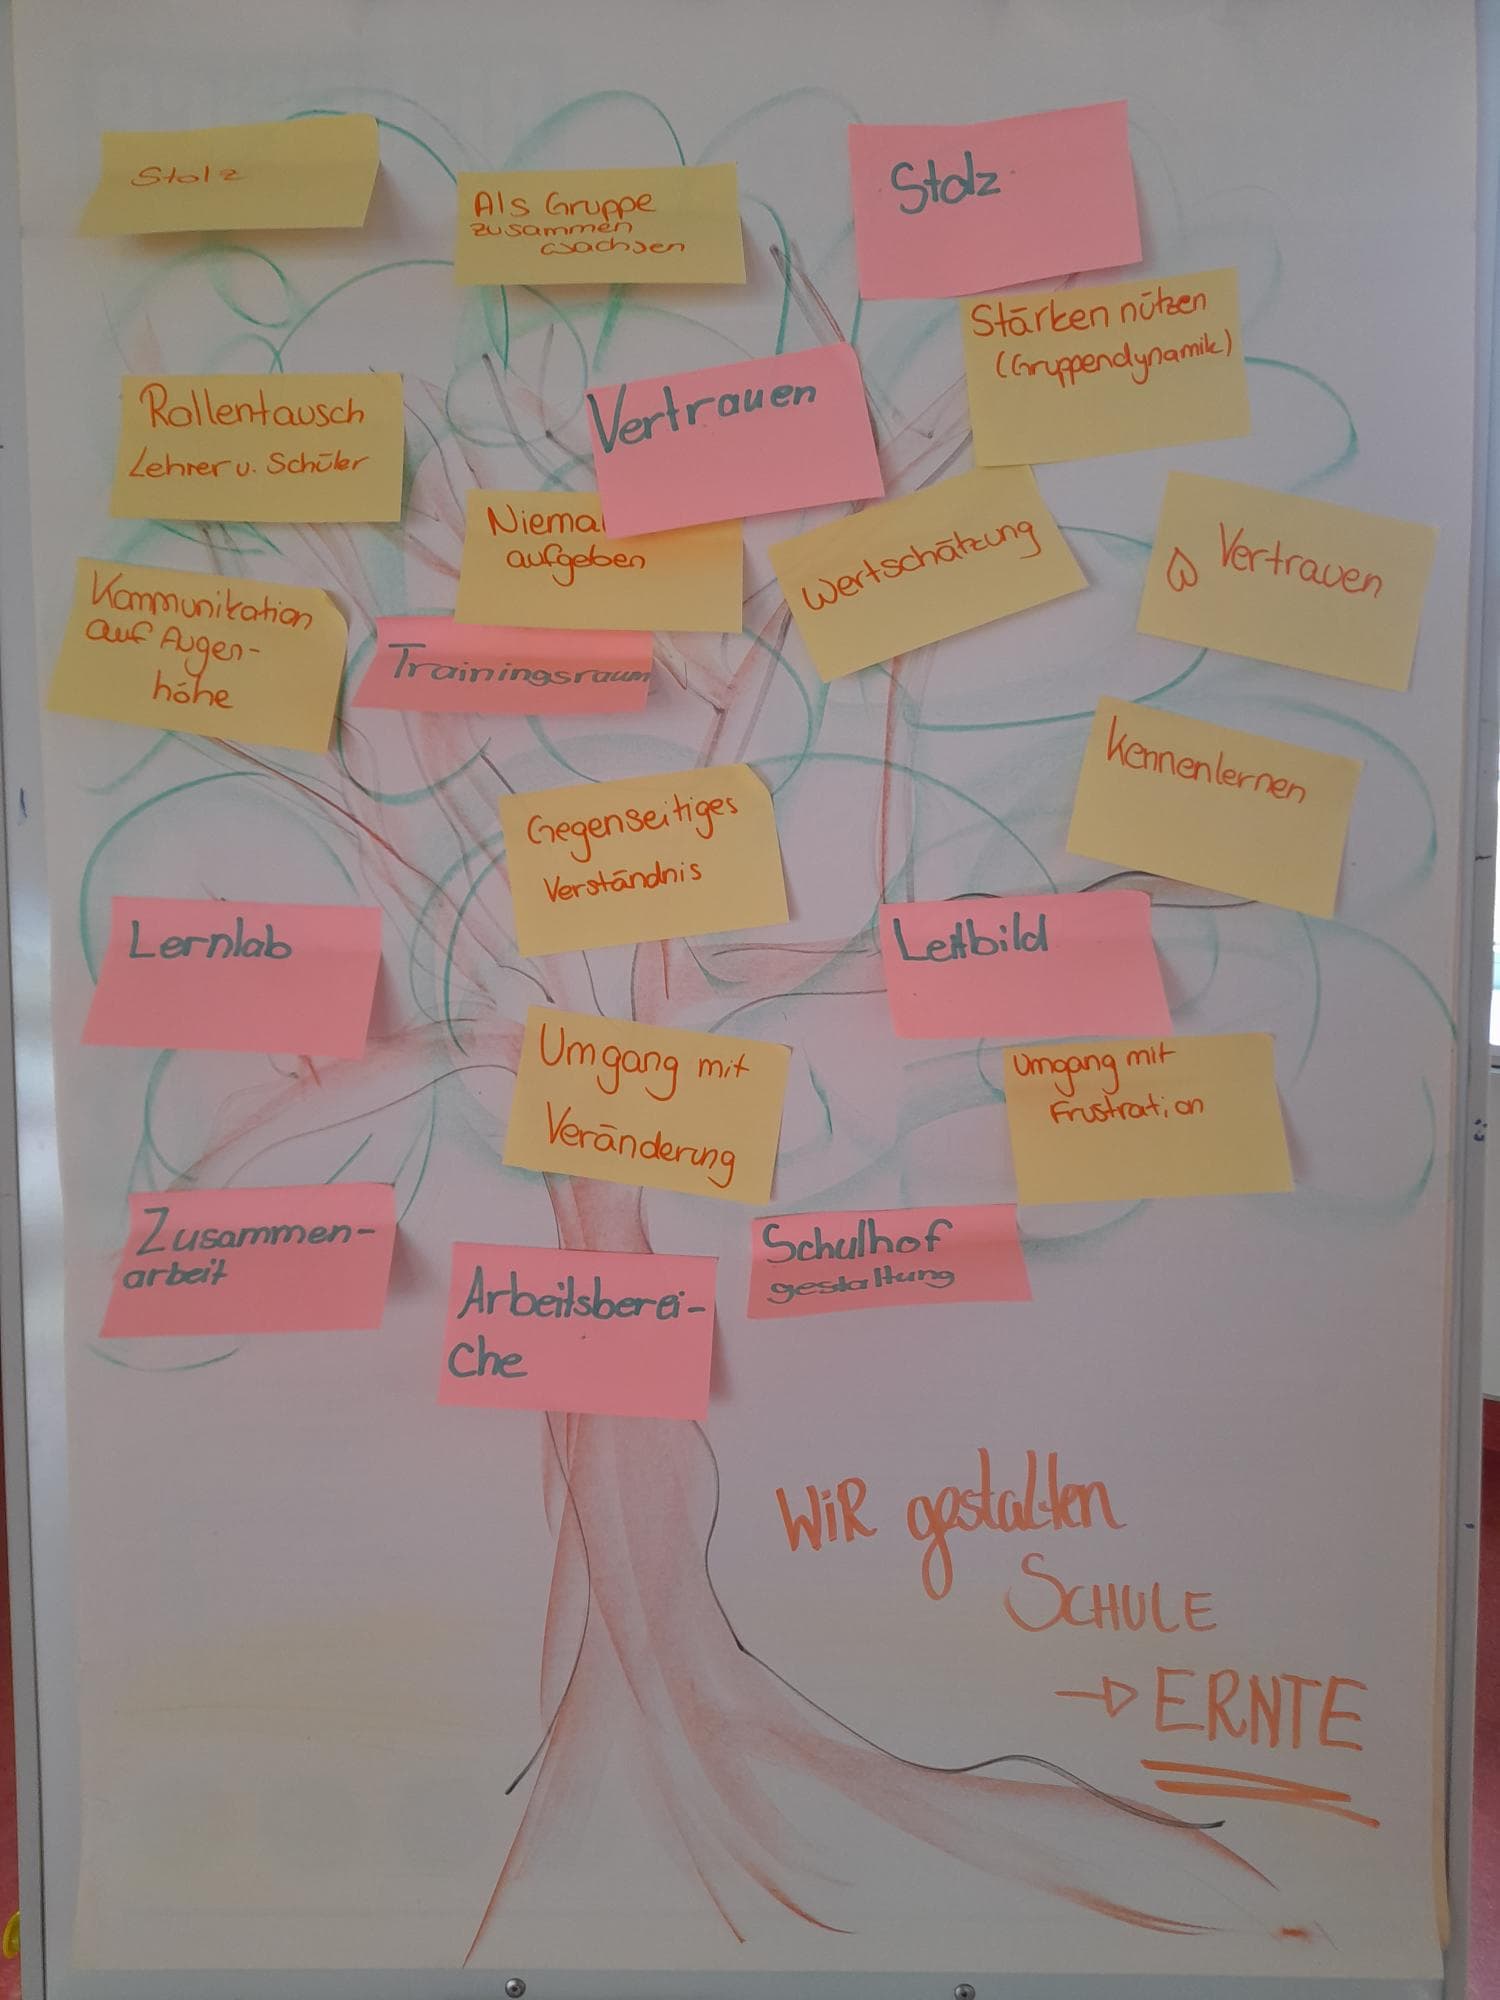 Stolz
Als Gruppe
zusammen
wachsen
Stolz
Stärken nützen
(Gruppendynamik)
Rollentausch
Lehrer u. Schüler
Vertrauen
Niemal
aufgeben
Wertschätzung
Vertrauen
Kommunikation
auf Augen-
höhe
Trainingsraum
Kennenlernen
Gegenseitiges
Verständnis
Lernlab
Leitbild
Umgang mit
Veränderung
Umgang mit
Frustration
Zusammen-
arbeit
Arbeitsberei-
che
Schulhof
gestaltung
WiR gestalten
SCHULE
→ ERNTE